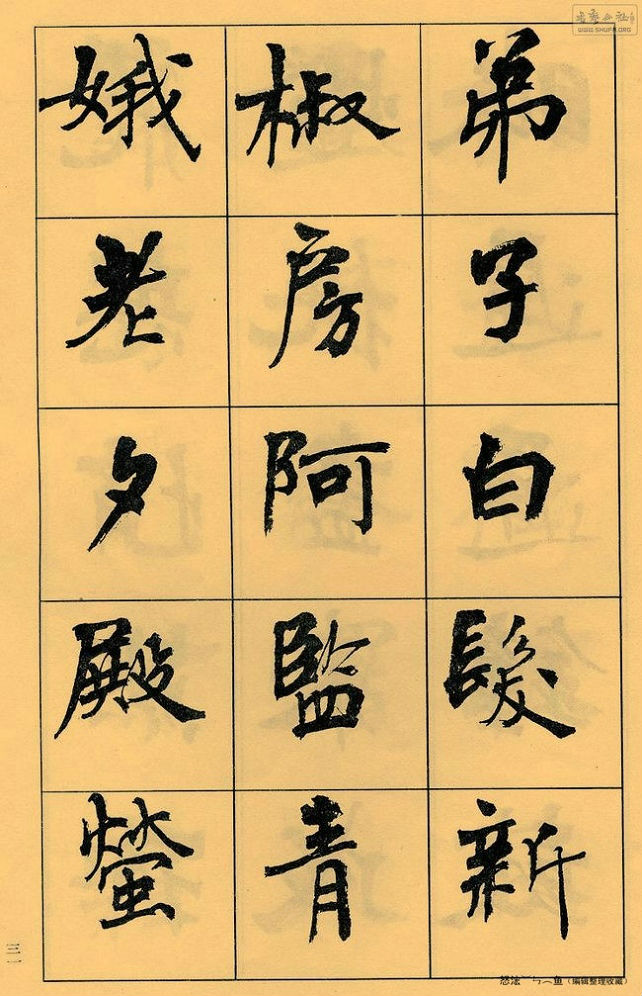 弟子白髮新
椒房阿監青
娥老夕殿螢
三一
WWW.SHUFA.ORG
(编辑整理收藏)